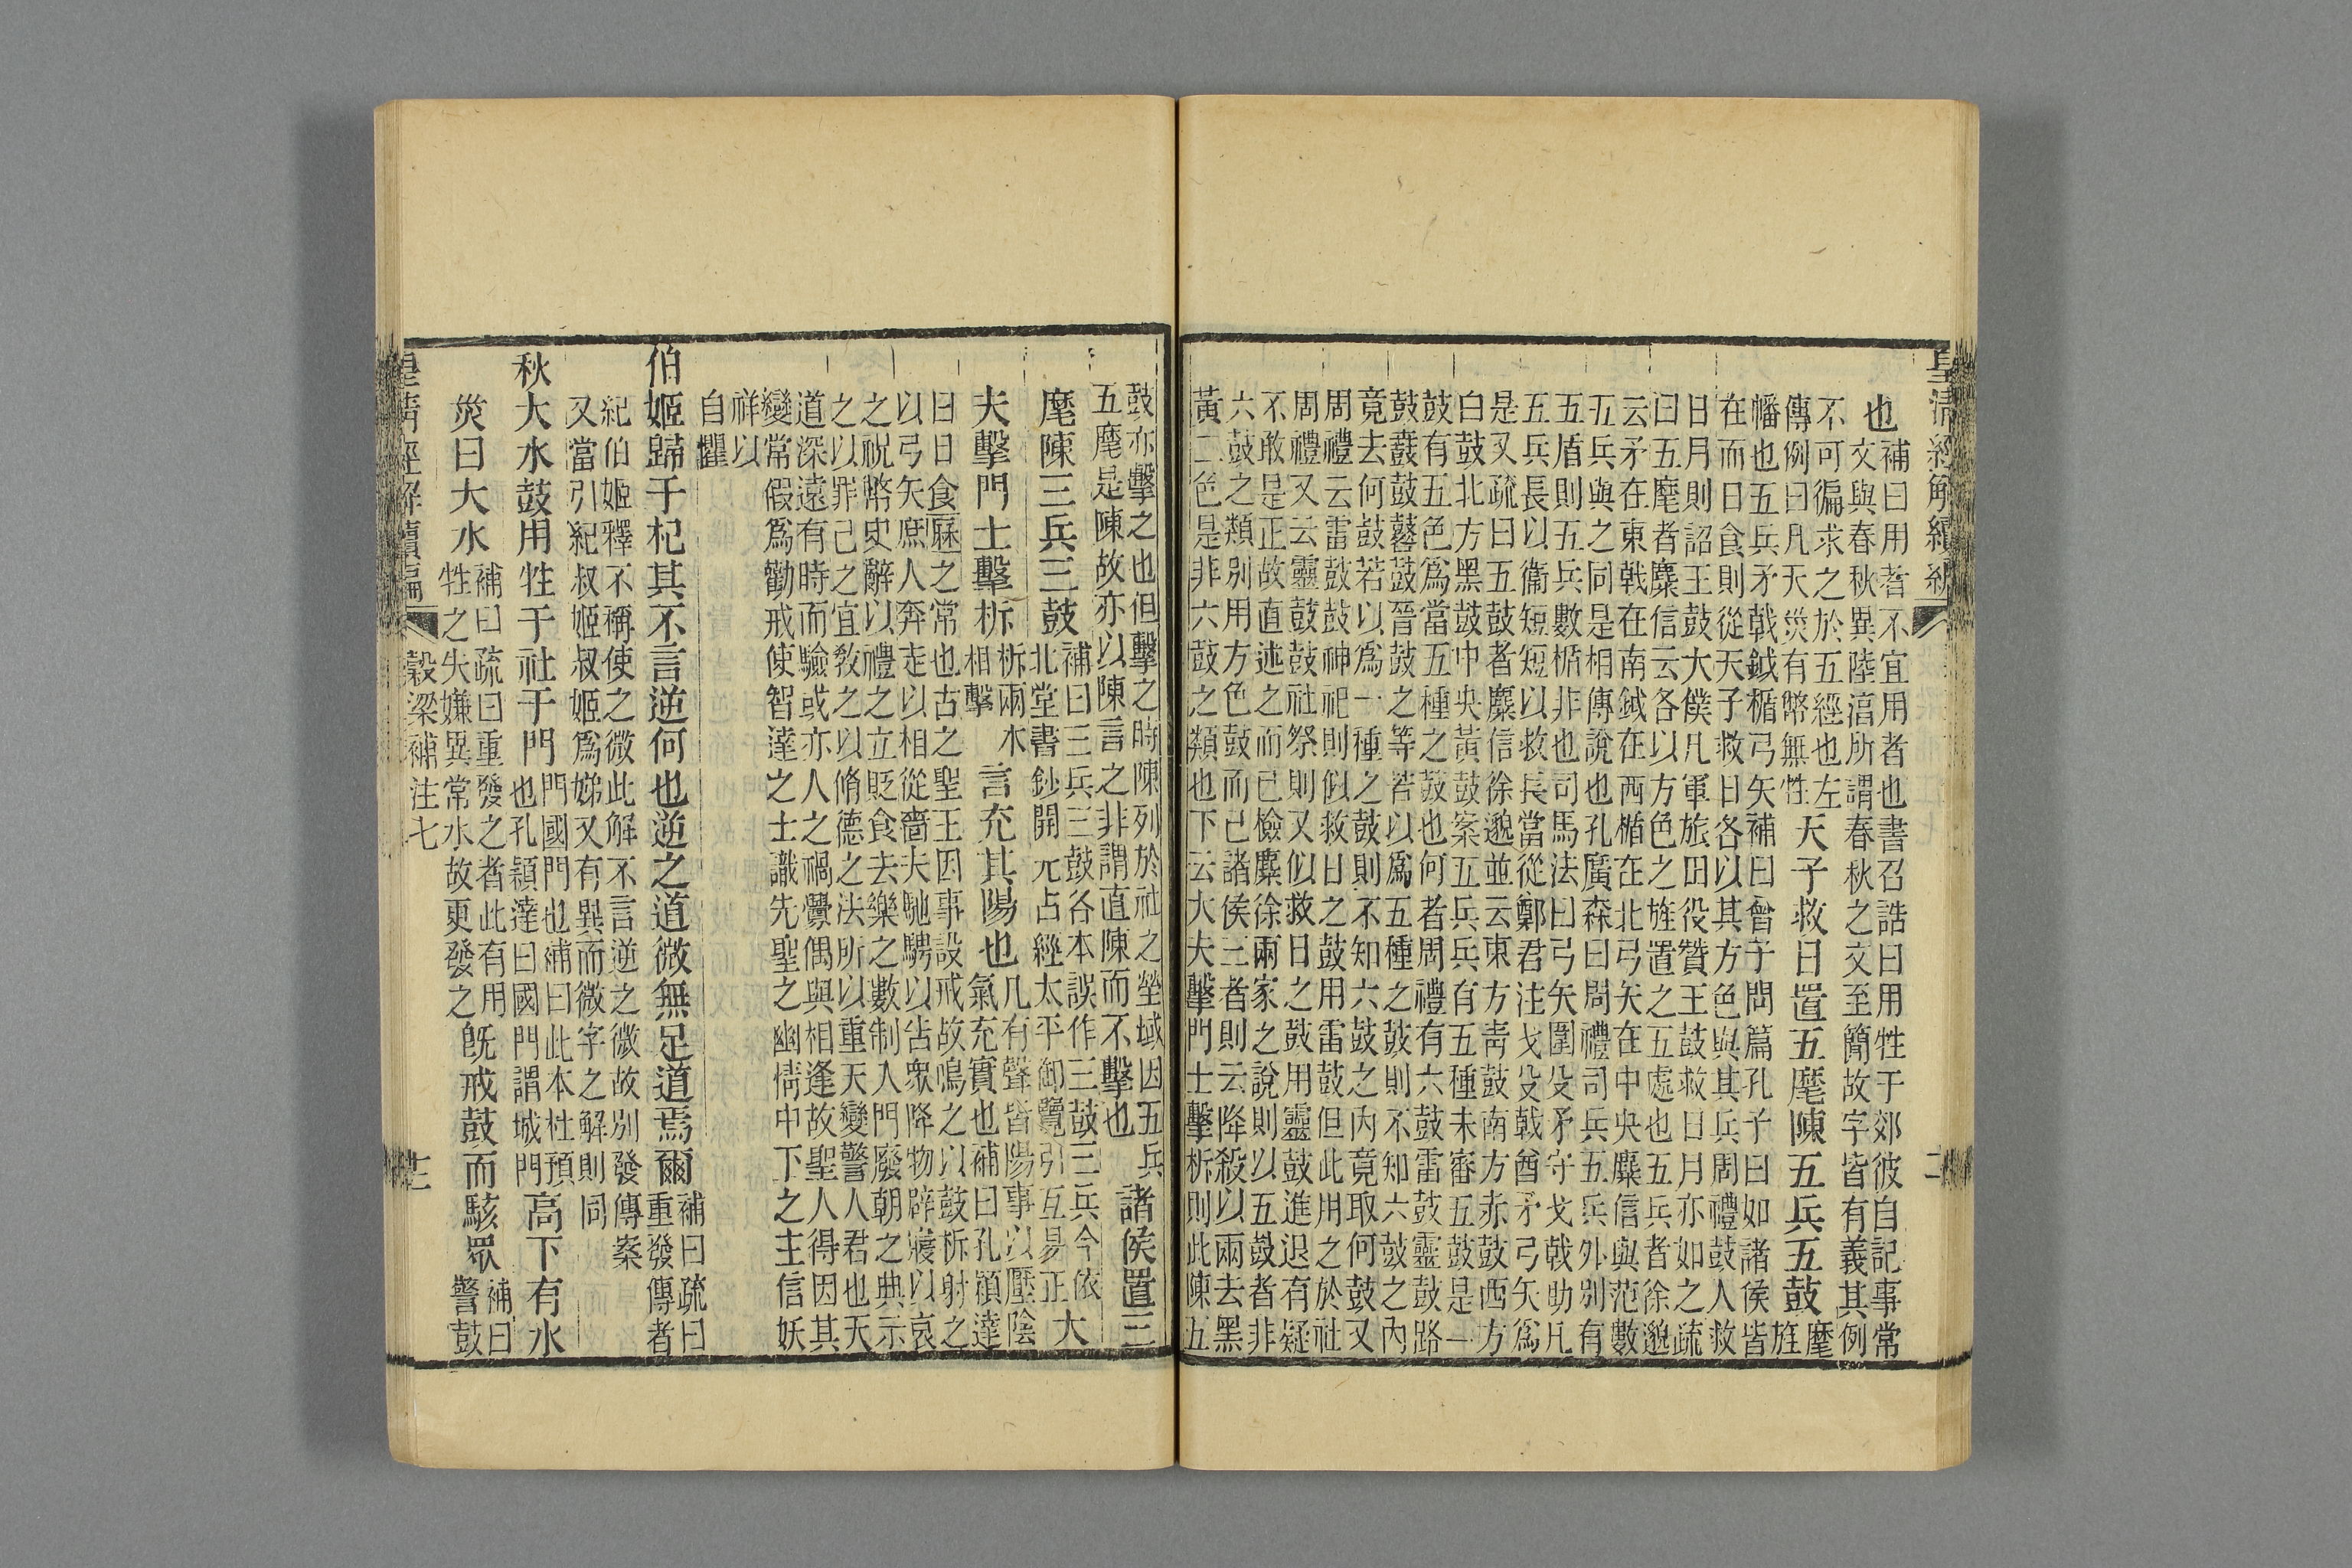 皇清經解續編
也
補曰用者不宜用者也書召誥曰用牲于郊彼自記事常
文與春秋異陸湻所謂春秋之文至簡故字皆有義其例
不可徧求之於五經也左
傳例曰凡天災有幣無牲
天子救日置五麾陳五兵五鼓
麾旌
幡也五兵矛戟鉞楯弓矢補曰曾子問篇孔子曰如諸侯皆
在而日食則從天子救日各以其方色與其兵周禮鼓人救
日月則詔王鼓大僕凡軍旅田役贊王鼓救日月亦如之疏
曰五麾者麋信云各以方色之旌置之五處也五兵者徐邈
云矛在東戟在南鉞在西楯在北弓矢在中央麋信與范數
五兵與之同是相傳說也孔廣森曰周禮司兵五兵外別有
五盾則五兵數楯非也司馬法曰弓矢圍殳矛守戈戟助凡
五兵長以衞短短以救長當從鄭君注戈殳戟酋矛弓矢爲
是又疏曰五鼓者麋信徐邈並云東方靑鼓南方赤鼓西方
白鼓北方黑鼓中央黃鼓案五兵兵有五種未審五鼓是一
鼓有五色爲當五種之鼓也何者周禮有六鼓雷鼓靈鼓路
鼓鼖鼓鼛鼓晉鼓之等若以爲五種之鼓則不知六鼓之內
竟去何鼓若以爲一種之鼓則不知六鼓之內竟取何鼓又
周禮云雷鼓鼓神祀則似救日之鼓用雷鼓但此用之於社
周禮又云靈鼓鼓社祭則又似救日之鼓用靈鼓進退有疑
不敢是正故直述之而已檢麋徐兩家之說則以五鼓者非
六鼓之類別用方色鼓而已諸侯三者則云降殺以兩去黑
黃二色是非六鼓之類也下云大夫擊門士擊柝則此陳五
鼓亦擊之也但擊之時陳列於社之塋域因五兵
五麾是陳故亦以陳言之非謂直陳而不擊也
諸侯置三
麾陳三兵三鼓
補曰三兵三鼓各本誤作三鼓三兵今依
北堂書鈔開元占經太平御覽引互易正
大
夫擊門士擊柝
柝兩木
相擊
言充其陽也
凡有聲皆陽事以壓陰
氣充實也補曰孔穎達
曰日食厤之常也古之聖王因事設戒故鳴之以鼓柝射之
以弓矢庶人奔走以相從嗇夫馳騁以告衆降物辟寢以哀
之祝幣史辭以禮之立貶食去樂之數制入門廢朝之典示
之以罪己之宜敎之以脩德之法所以重天變警人君也天
道深遠有時而驗或亦人之禍釁偶與相逢故聖人得因其
變常假爲勸戒使智達之士識先聖之幽情中下之主信妖
祥以
自懼
伯姬歸于杞其不言逆何也逆之道微無足道焉爾
補曰疏曰
重發傳者
紀伯姬釋不稱使之微此解不言逆之微故別發傳案
又當引紀叔姬叔姬爲娣又有異而微字之解則同
秋大水鼓用牲于社于門
門國門也補曰此本杜預
也孔穎達曰國門謂城門
高下有水
災曰大水
補曰疏曰重發之者此有用
牲之失嫌異常水故更發之
旣戒鼓而駭眾
補曰
警鼓
皇清經解續編
穀梁補注七